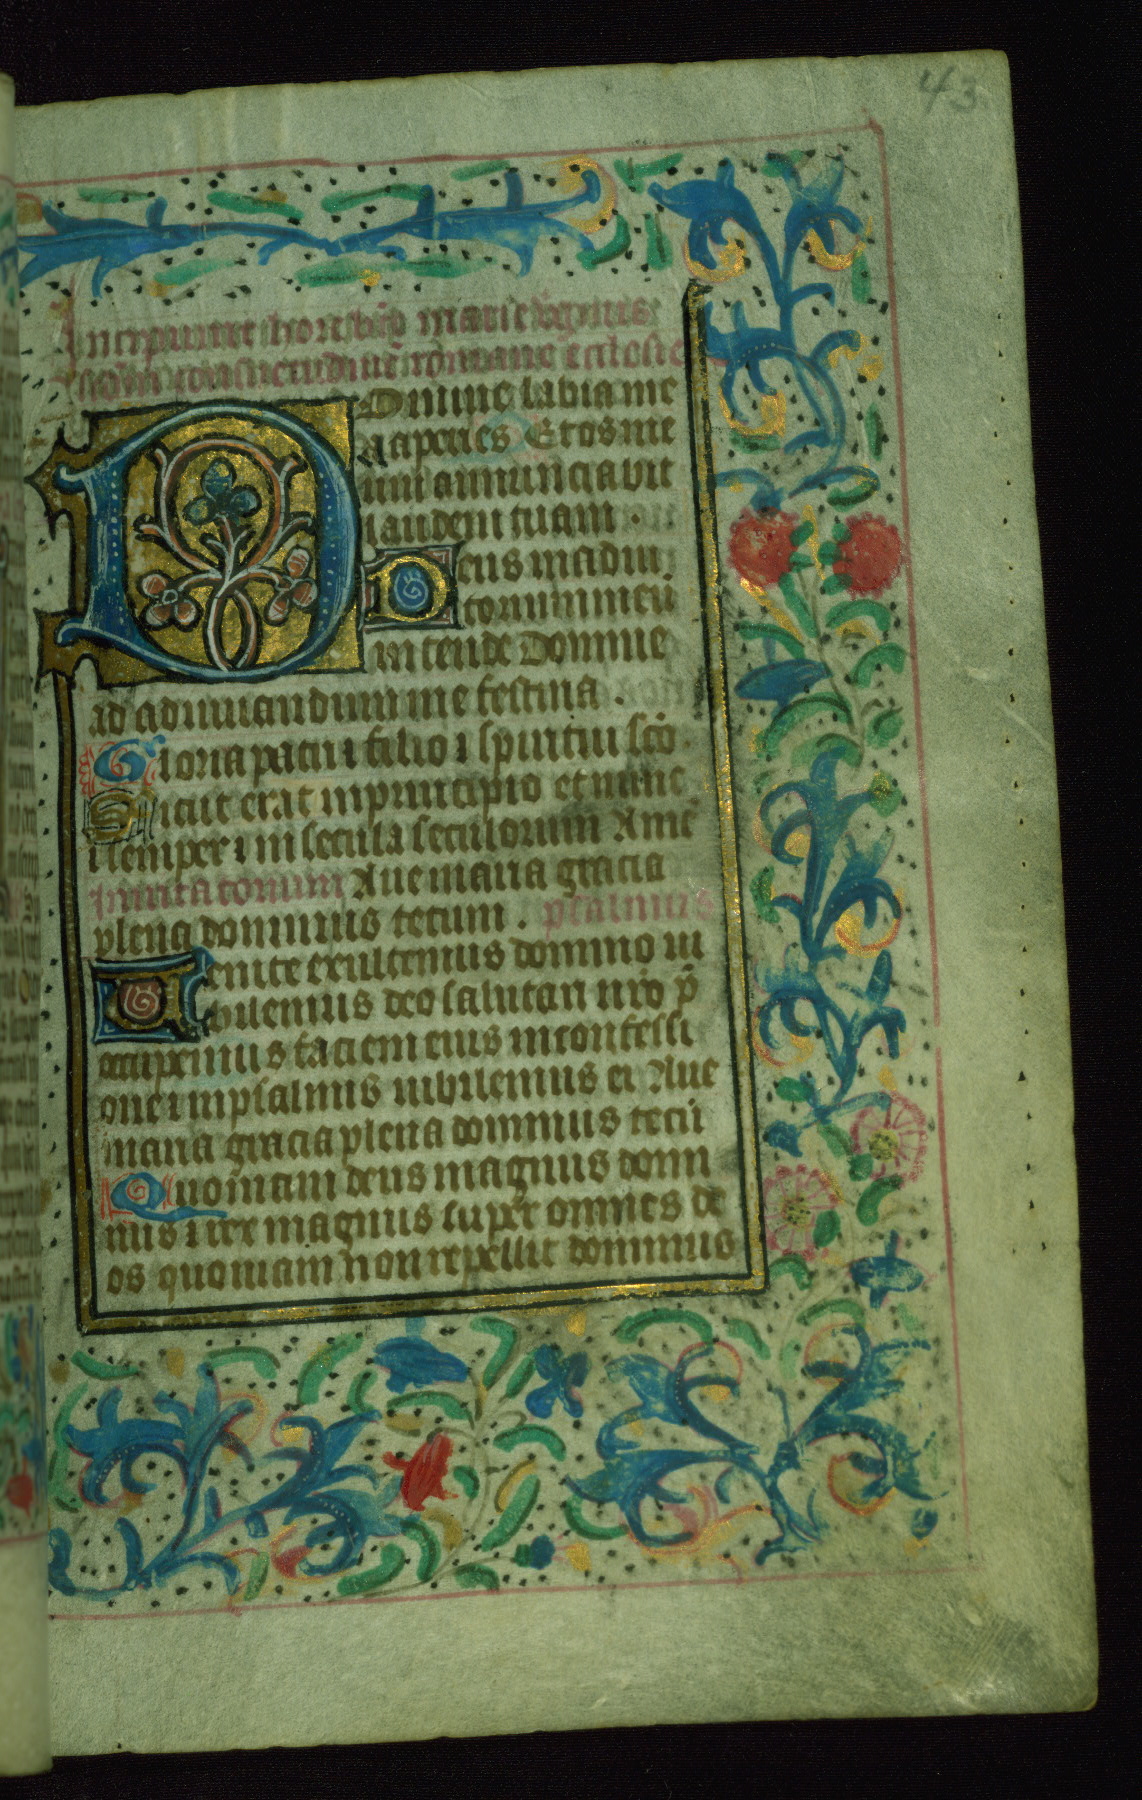 43
Incipiunt hore btē marie v̄ginis
scd̄m consuetudinē romane ecclesie
Domine labia me
a aperies Et os me
um annunciabit
laudem tuam .
Deus in adiu
torium meū
intende Domine
ad adiuuandum me festina .
Gloria patri ⁊ filio ⁊ spiritui scō .
Sicut erat in principio et nunc
⁊ semper ⁊ in secula seculorum Amē
Inuitatorium Aue maria gracia
plena dominus tecum . psalmus
Uenite exultemus domino iu
bilemus deo salutari nr̄o p̄
occupemus faciem eius in confessi
one ⁊ in psalmis iubilemus ei Aue
maria gracia plena dominus tecū
Quoniam deus magnus domi
nus ⁊ rex magnus super omnes de
os quoniam non repellit dominus